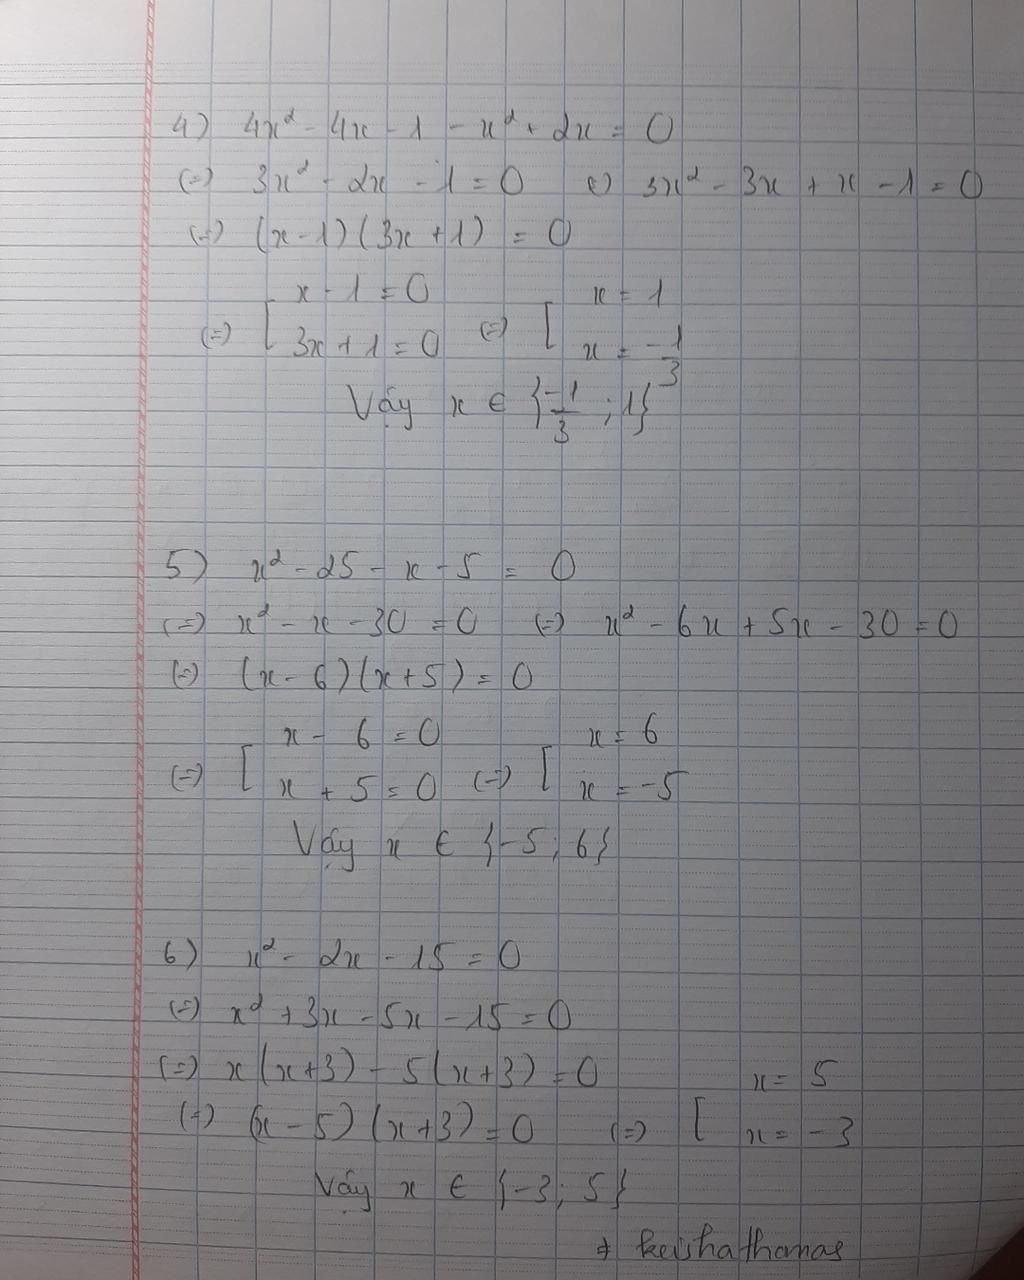 4) 4x² - 4x - 1 - x² + 2x = 0
(=) 3x² - 2x - 1 = 0 (=) 3x² - 3x + x - 1 = 0
(=) (x - 1)(3x + 1) = 0
(=) [ x - 1 = 0 (=) [ x = 1
3x + 1 = 0 x = -1/3
Vậy x ∈ {-1/3 ; 1}
5) x² - 25 - x - 5 = 0
(=) x² - x - 30 = 0 (=) x² - 6x + 5x - 30 = 0
(=) (x - 6)(x + 5) = 0
(=) [ x - 6 = 0 (=) [ x = 6
x + 5 = 0 x = -5
Vậy x ∈ {-5; 6}
6) x² - 2x - 15 = 0
(=) x² + 3x - 5x - 15 = 0
(=) x(x+3) - 5(x+3) = 0
(=) (x - 5)(x+3) = 0 (=) [ x = 5
x = -3
Vậy x ∈ {-3; 5}
# keishathomas